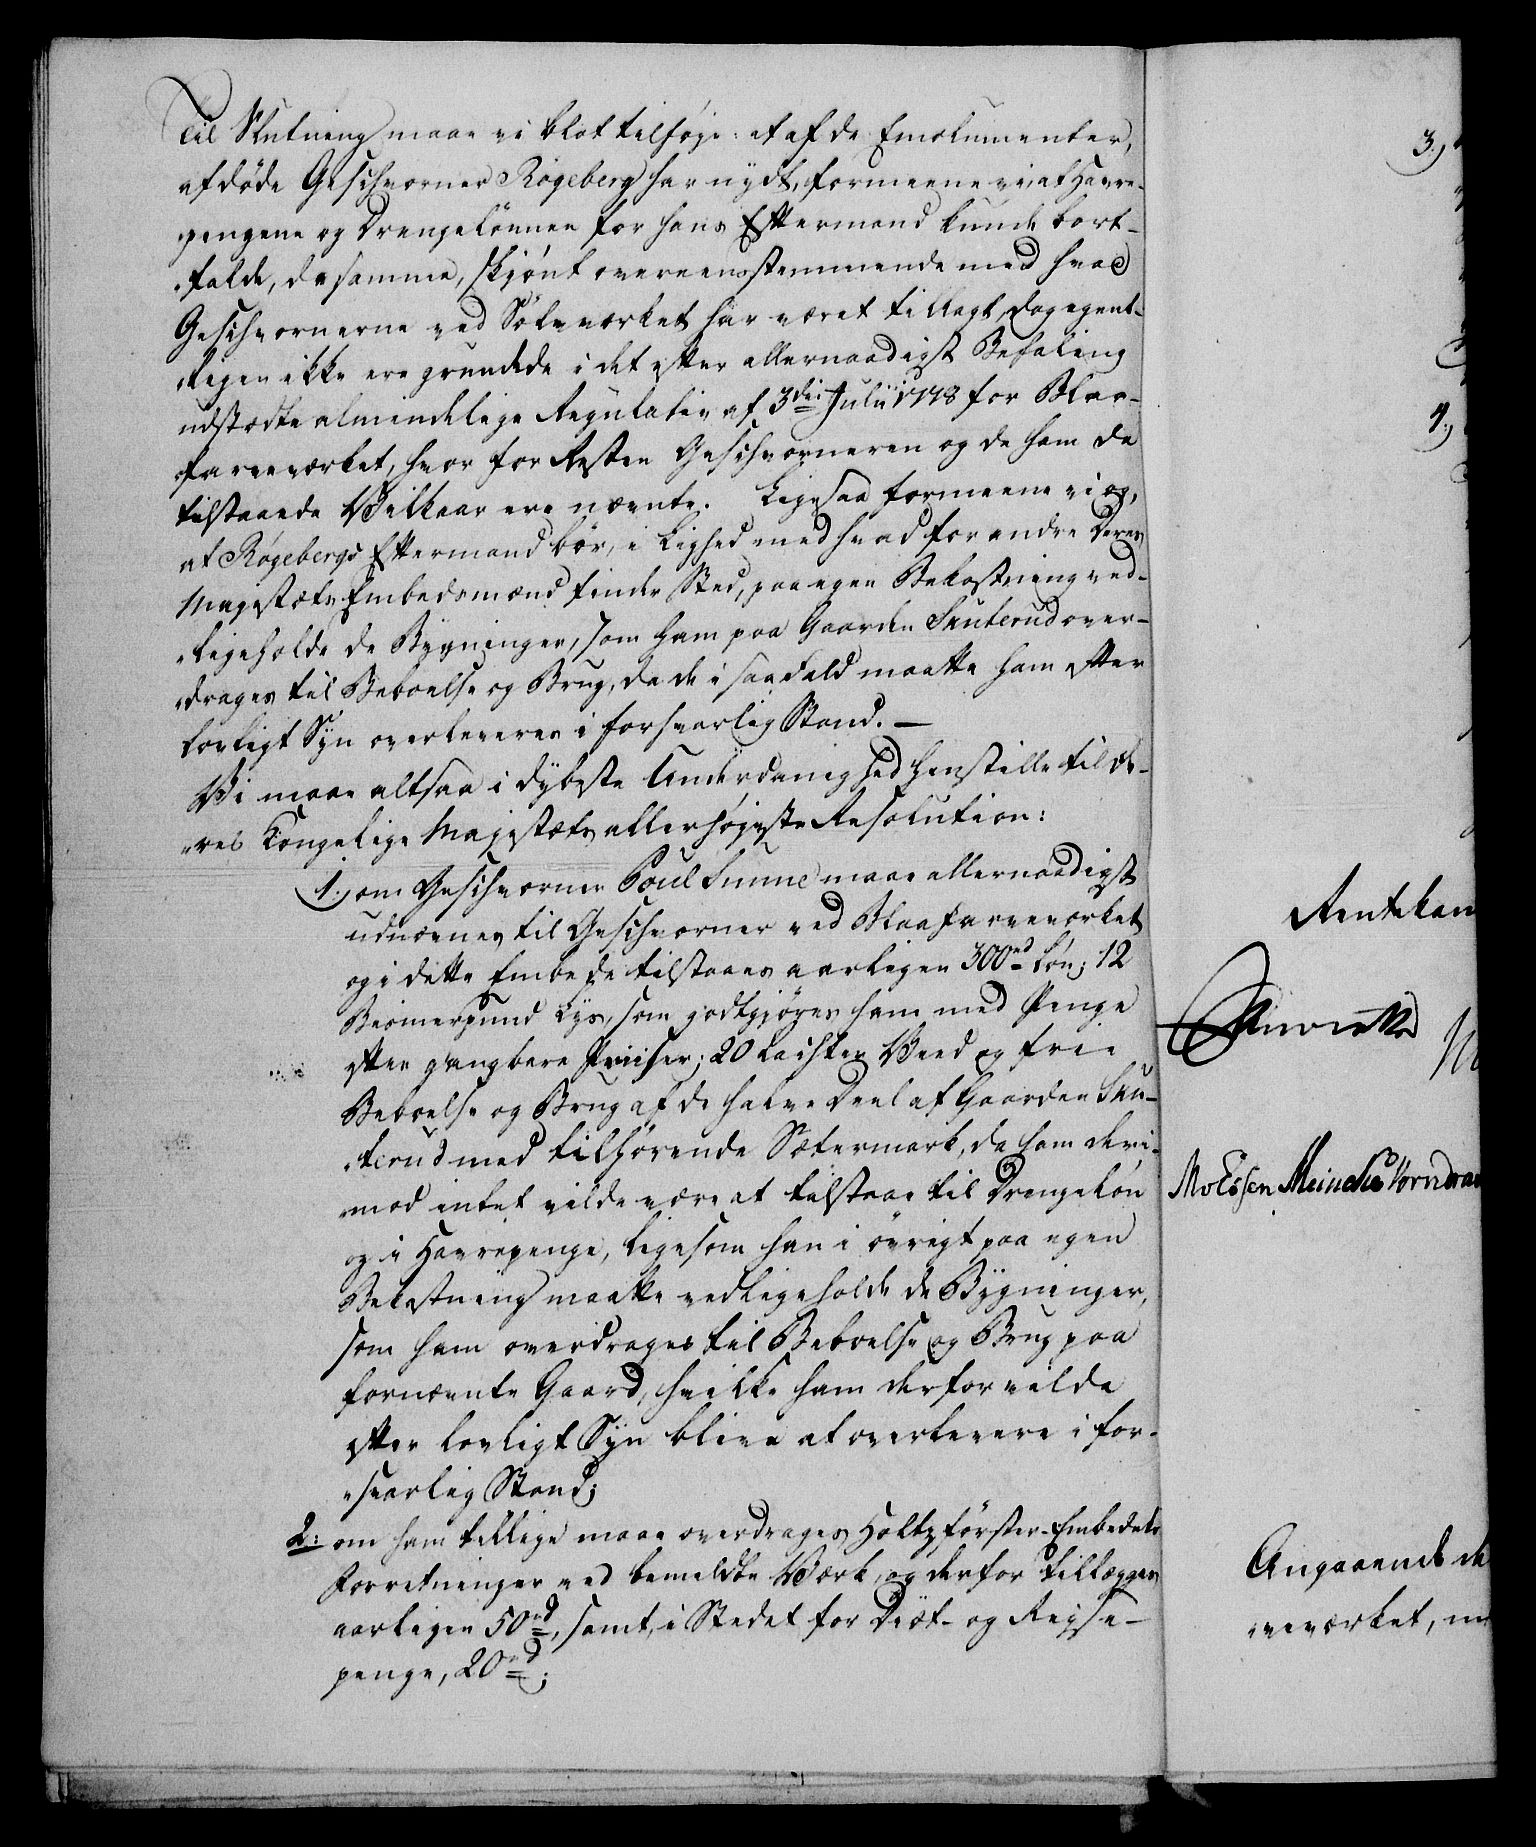 Til Slutning maae vi blot tilføje: at af de Emolumenter,
afdøde Geschworner Røgeberg har nydt, formeene vi, at Havre-
pengene og Drengelønnen for hans Eftermand kunde bort-
falde, da samme, skjønt overeensstemmende med hvad
Geschwornerne ved Sølvværket har været tillagt, dog egent-
ligen ikke ere grundede i det efter allernaadigst Befaling
udstædte almindelige Regulativ af 3die Julii 1778 for Blaa-
farveværket, hvor for Resten Geschworneren og de ham da
tilstaaede Vilkaar ere nævnte. Ligesaa formeene vi og,
at Røgebergs Eftermand bør, i Lighed med hvad for andre Deres
Majestæts Embedsmænd finder Sted, paa egen Bekostning ved-
ligeholde de Bygninger, som ham paa Gaarden Skuterud over-
drages til Beboelse og Brug, da de i saa Fald maatte ham efter
lovligt Syn overleveres i forsvarlig Stand. —
Vi maae altsaa i dybeste Underdanighed henstille til De-
res Kongelige Majestæts allerhøjeste Resolution:
1.) om Geschworner Poul Sunne maae allernaadigst
udnævnes til Geschworner ved Blaafarveværket
og i dette Embede tilstaaes aarligen 300 rd Løn; 12
Bismerpund Lys, som godtgjøres ham med Penge
efter gangbare Priiser; 20 Lachter Veed og frie
Beboelse og Brug af de halve Deel af Gaarden Sku-
terud med tilhørende Sætermark, da ham deri-
mod intet vilde være at tilstaae til Drengeløn
og i Havrepenge, ligesom han i øvrigt paa egen
Bekostning maatte vedligeholde de Bygninger,
som ham overdrages til Beboelse og Brug paa
fornævnte Gaard, hvilke ham derfor vilde
efter lovligt Syn blive at overlevere i for-
svarlig Stand;
2: om ham tillige maae overdrages Holtzførster-Embedets
Forretninger ved bemeldte Værk, og derfor tillægges
aarligen 50 rd, samt, i Stedet for Diæt- og Rejse-
penge, 20 rd;
3.)
4.)
Rentekam
Meinche
Angaaende de
veværket,